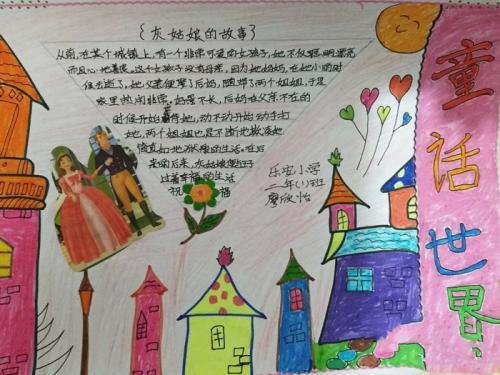 {灰姑娘的故事}
从前,在某个城镇上,有一个非常可爱的女孩子,她不仅聪明漂亮
而且心地善良,这个女孩子没有母亲,因为她妈妈,在她小的时
候去逝了,她父亲便娶了后妈,随带了两个姐姐,于是
家里热闹非常,好景不长,后妈在父亲不在的
时候开始虐待她,动不动开始动手打
她,两个姐姐也是不断地欺凌她
来的后来,灰姑娘
过着幸福的生活
祝 福
乐安小学
二年(1)班
廖欣怡
童话世界